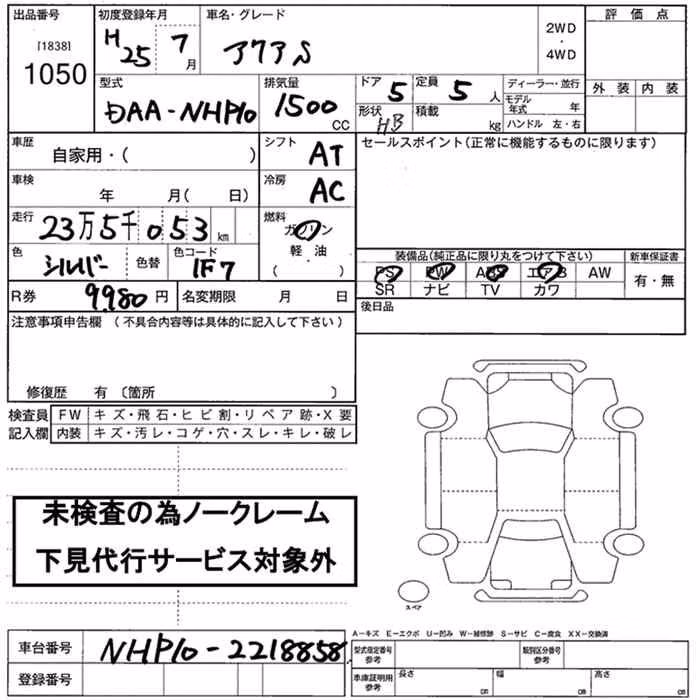 出品番号
[1838]
1050
初度登録年月
H 25 7 月
車名・グレード
アクア S
2WD
・
4WD
評価点
外装 内装
型式
DAA-NHP10
排気量
1500
CC
ドア 5
定員 5 人
形状 HB
積載 kg
ディーラー・並行
モデル年式 年
ハンドル 左・右
車歴
自家用・( )
シフト AT
セールスポイント(正常に機能するものに限ります)
車検
年 月( 日)
冷房 AC
走行 23万5千053 km
燃料
ガソリン
軽油
( ・ )
色 シルバー 色替
色コード 1F7
装備品(純正品に限り丸をつけて下さい)
新車保証書
PS PW ABS エアB AW
SR ナビ TV カワ
有・無
R券 9980 円
名変期限 月 日
後日品
注意事項申告欄 (不具合内容等は具体的に記入して下さい)
修復歴 有 〔箇所 〕
検査員 FW キズ・飛石・ヒビ割・リペア跡・X要
記入欄 内装 キズ・汚レ・コゲ・穴・スレ・キレ・破レ
未検査の為ノークレーム
下見代行サービス対象外
スペア
A-キズ E-エクボ U-凹み W-補修跡 S-サビ C-腐食 XX-交換済
車台番号 NHP10-2218858
登録番号
型式指定番号 参考
類別区分番号 参考
車庫証明用 参考
長さ cm
幅 cm
高さ cm